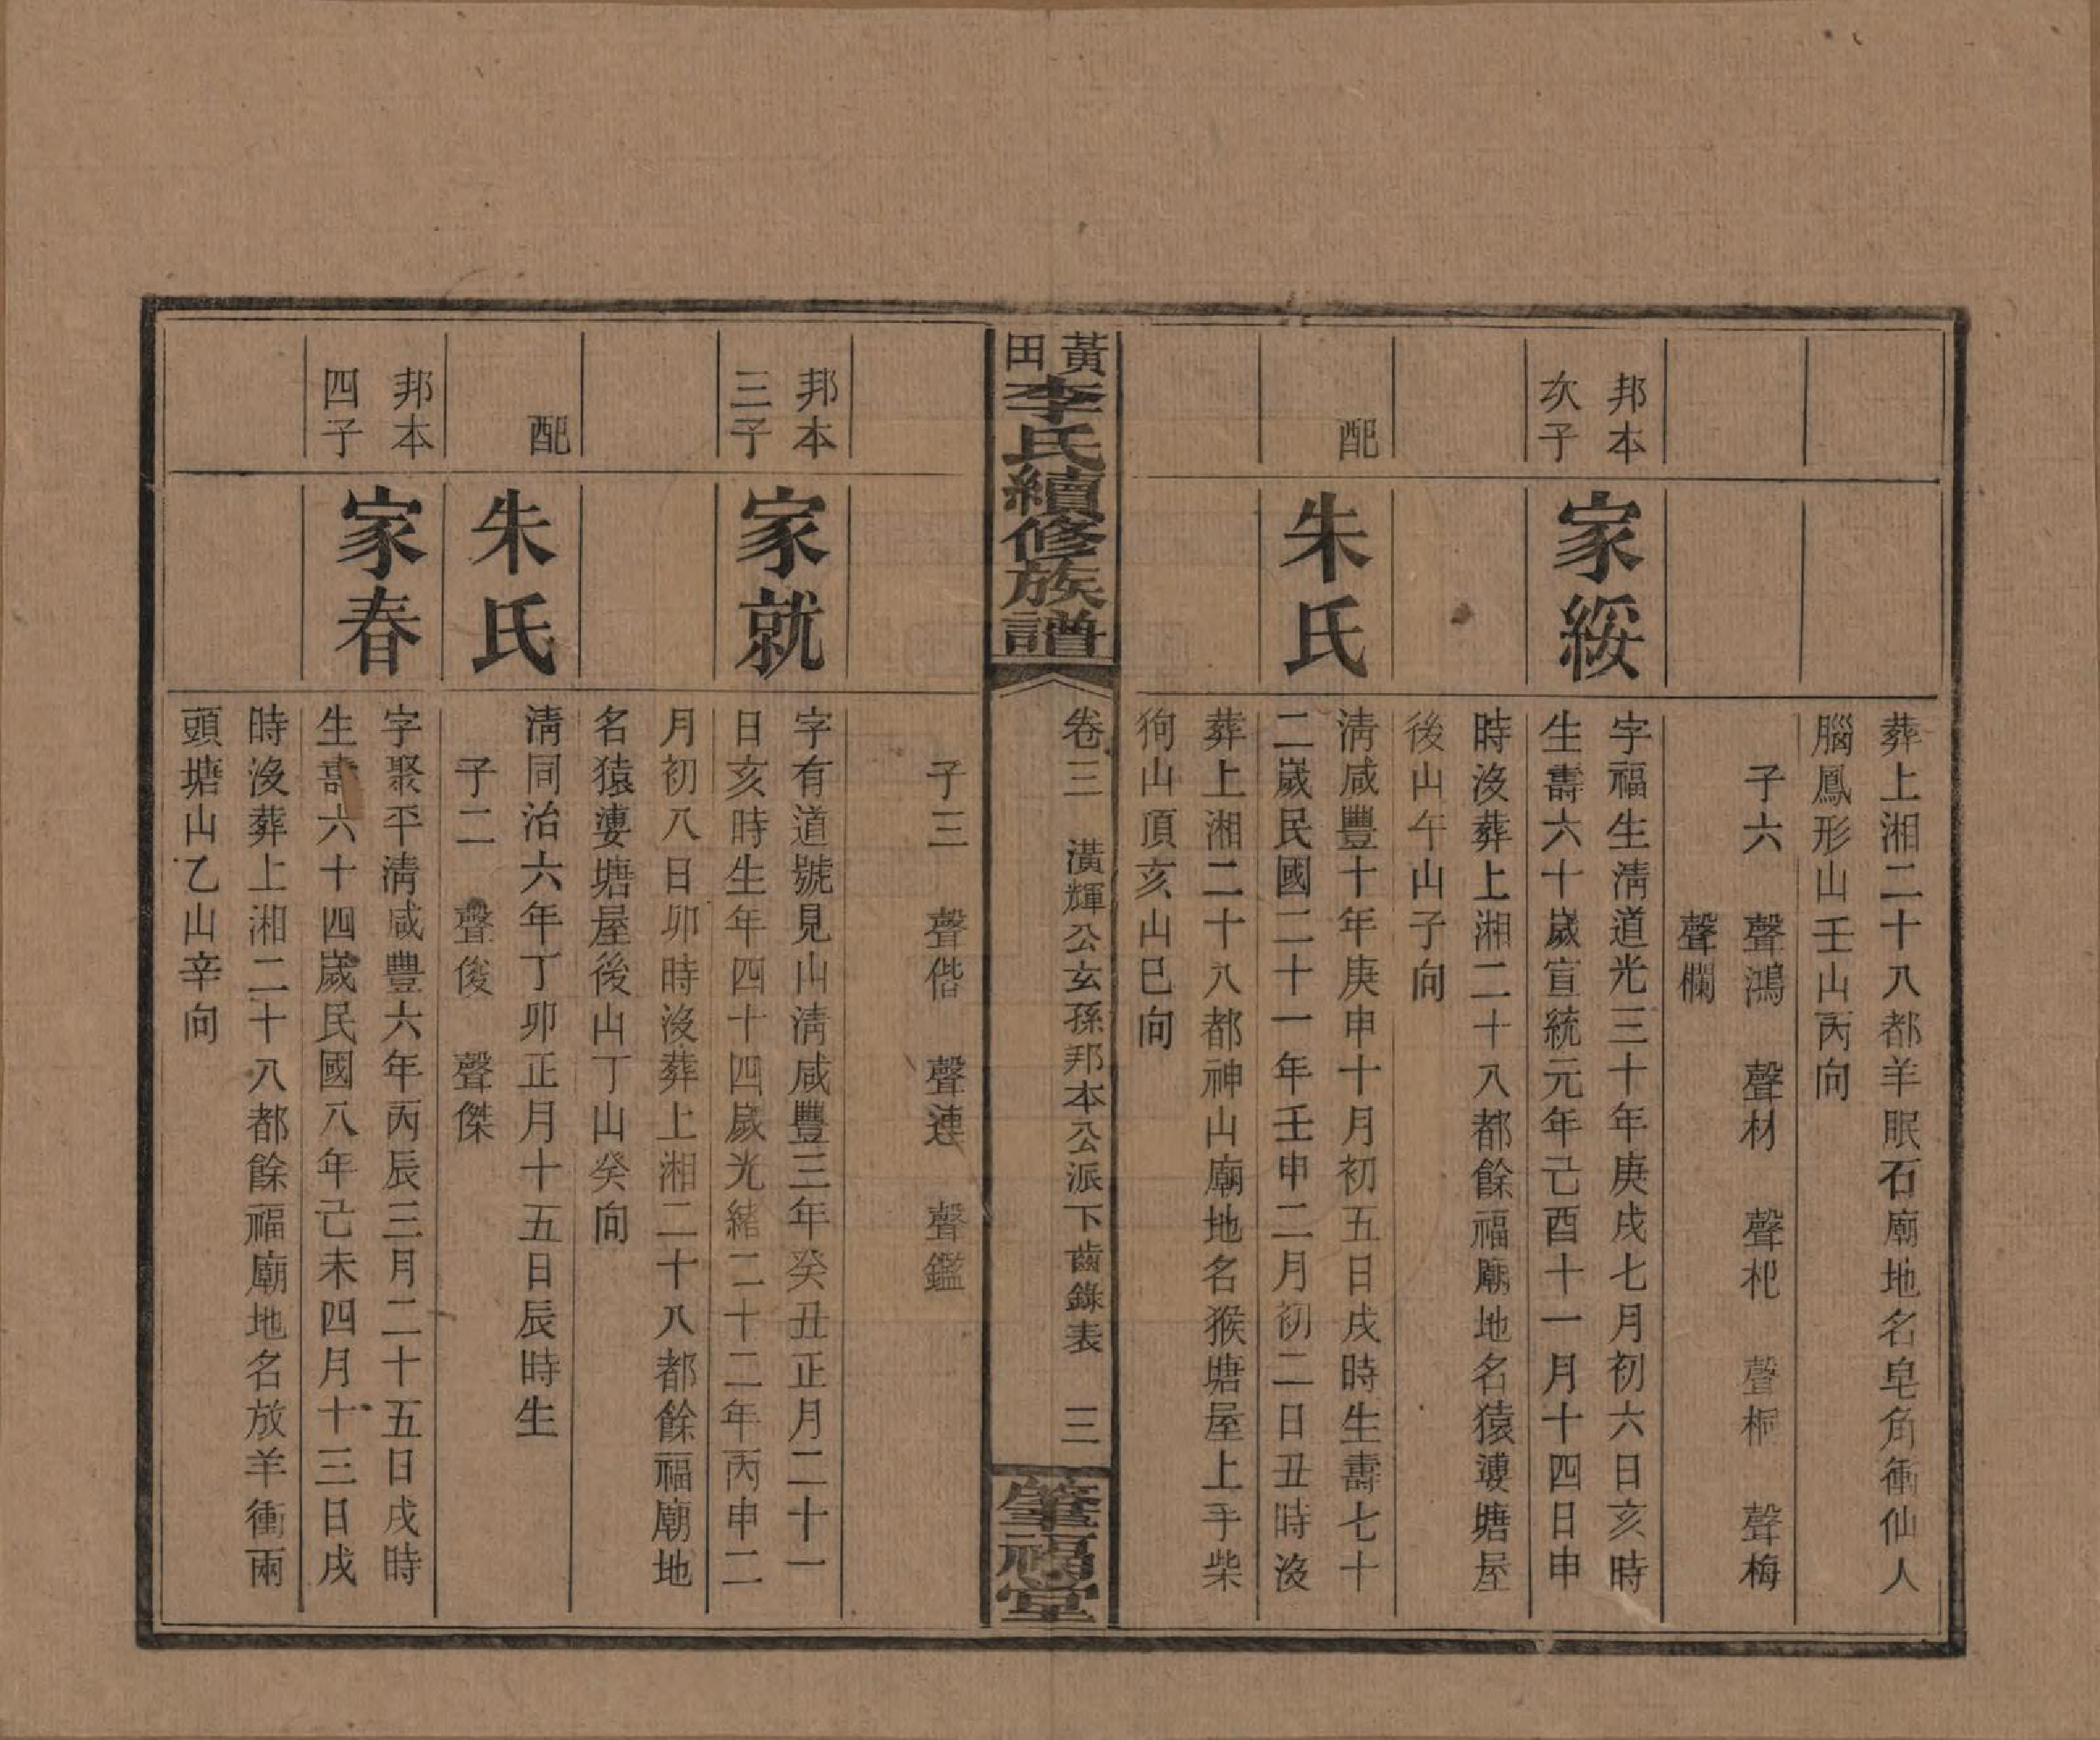 葬上湘二十八都羊眠石廟地名皂角衝仙人
腦鳳形山壬山丙向
子六　聲鴻　聲材　聲杞　聲桐　聲梅
聲欄
邦本
次子
家綏
字福生淸道光三十年庚戌七月初六日亥時
生壽六十歲宣統元年己酉十一月十四日申
時沒葬上湘二十八都餘福廟地名猿漊塘屋
後山午山子向
配
朱氏
淸咸豐十年庚申十月初五日戌時生壽七十
二歲民國二十一年壬申二月初二日丑時沒
葬上湘二十八都神山廟地名猴塘屋上手柴
狗山頂亥山巳向
黃田李氏續修族譜
卷三　潢輝公玄孫邦本公派下齒錄表　三
肇福堂
子三　聲偕　聲連　聲鑑
邦本
三子
家就
字有道號見山淸咸豐三年癸丑正月二十一
日亥時生年四十四歲光緒二十二年丙申二
月初八日卯時沒葬上湘二十八都餘福廟地
名猿漊塘屋後山丁山癸向
配
朱氏
淸同治六年丁卯正月十五日辰時生
子二　聲俊　聲傑
邦本
四子
家春
字聚平淸咸豐六年丙辰三月二十五日戌時
生壽六十四歲民國八年己未四月十三日戌
時沒葬上湘二十八都餘福廟地名放羊衝兩
頭塘山乙山辛向